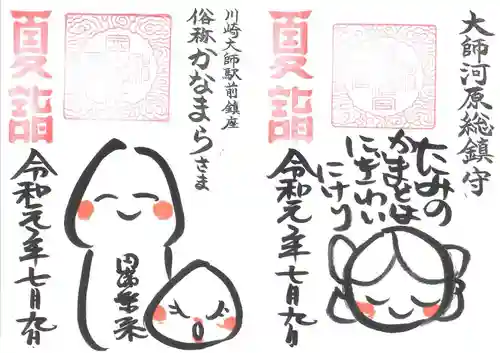 大師河原総鎮守
夏詣
たみの
かまどは
にぎわい
にけり
令和元年七月九日
川崎大師駅前鎮座
俗称かなまらさま
夏詣
令和元年七月九日